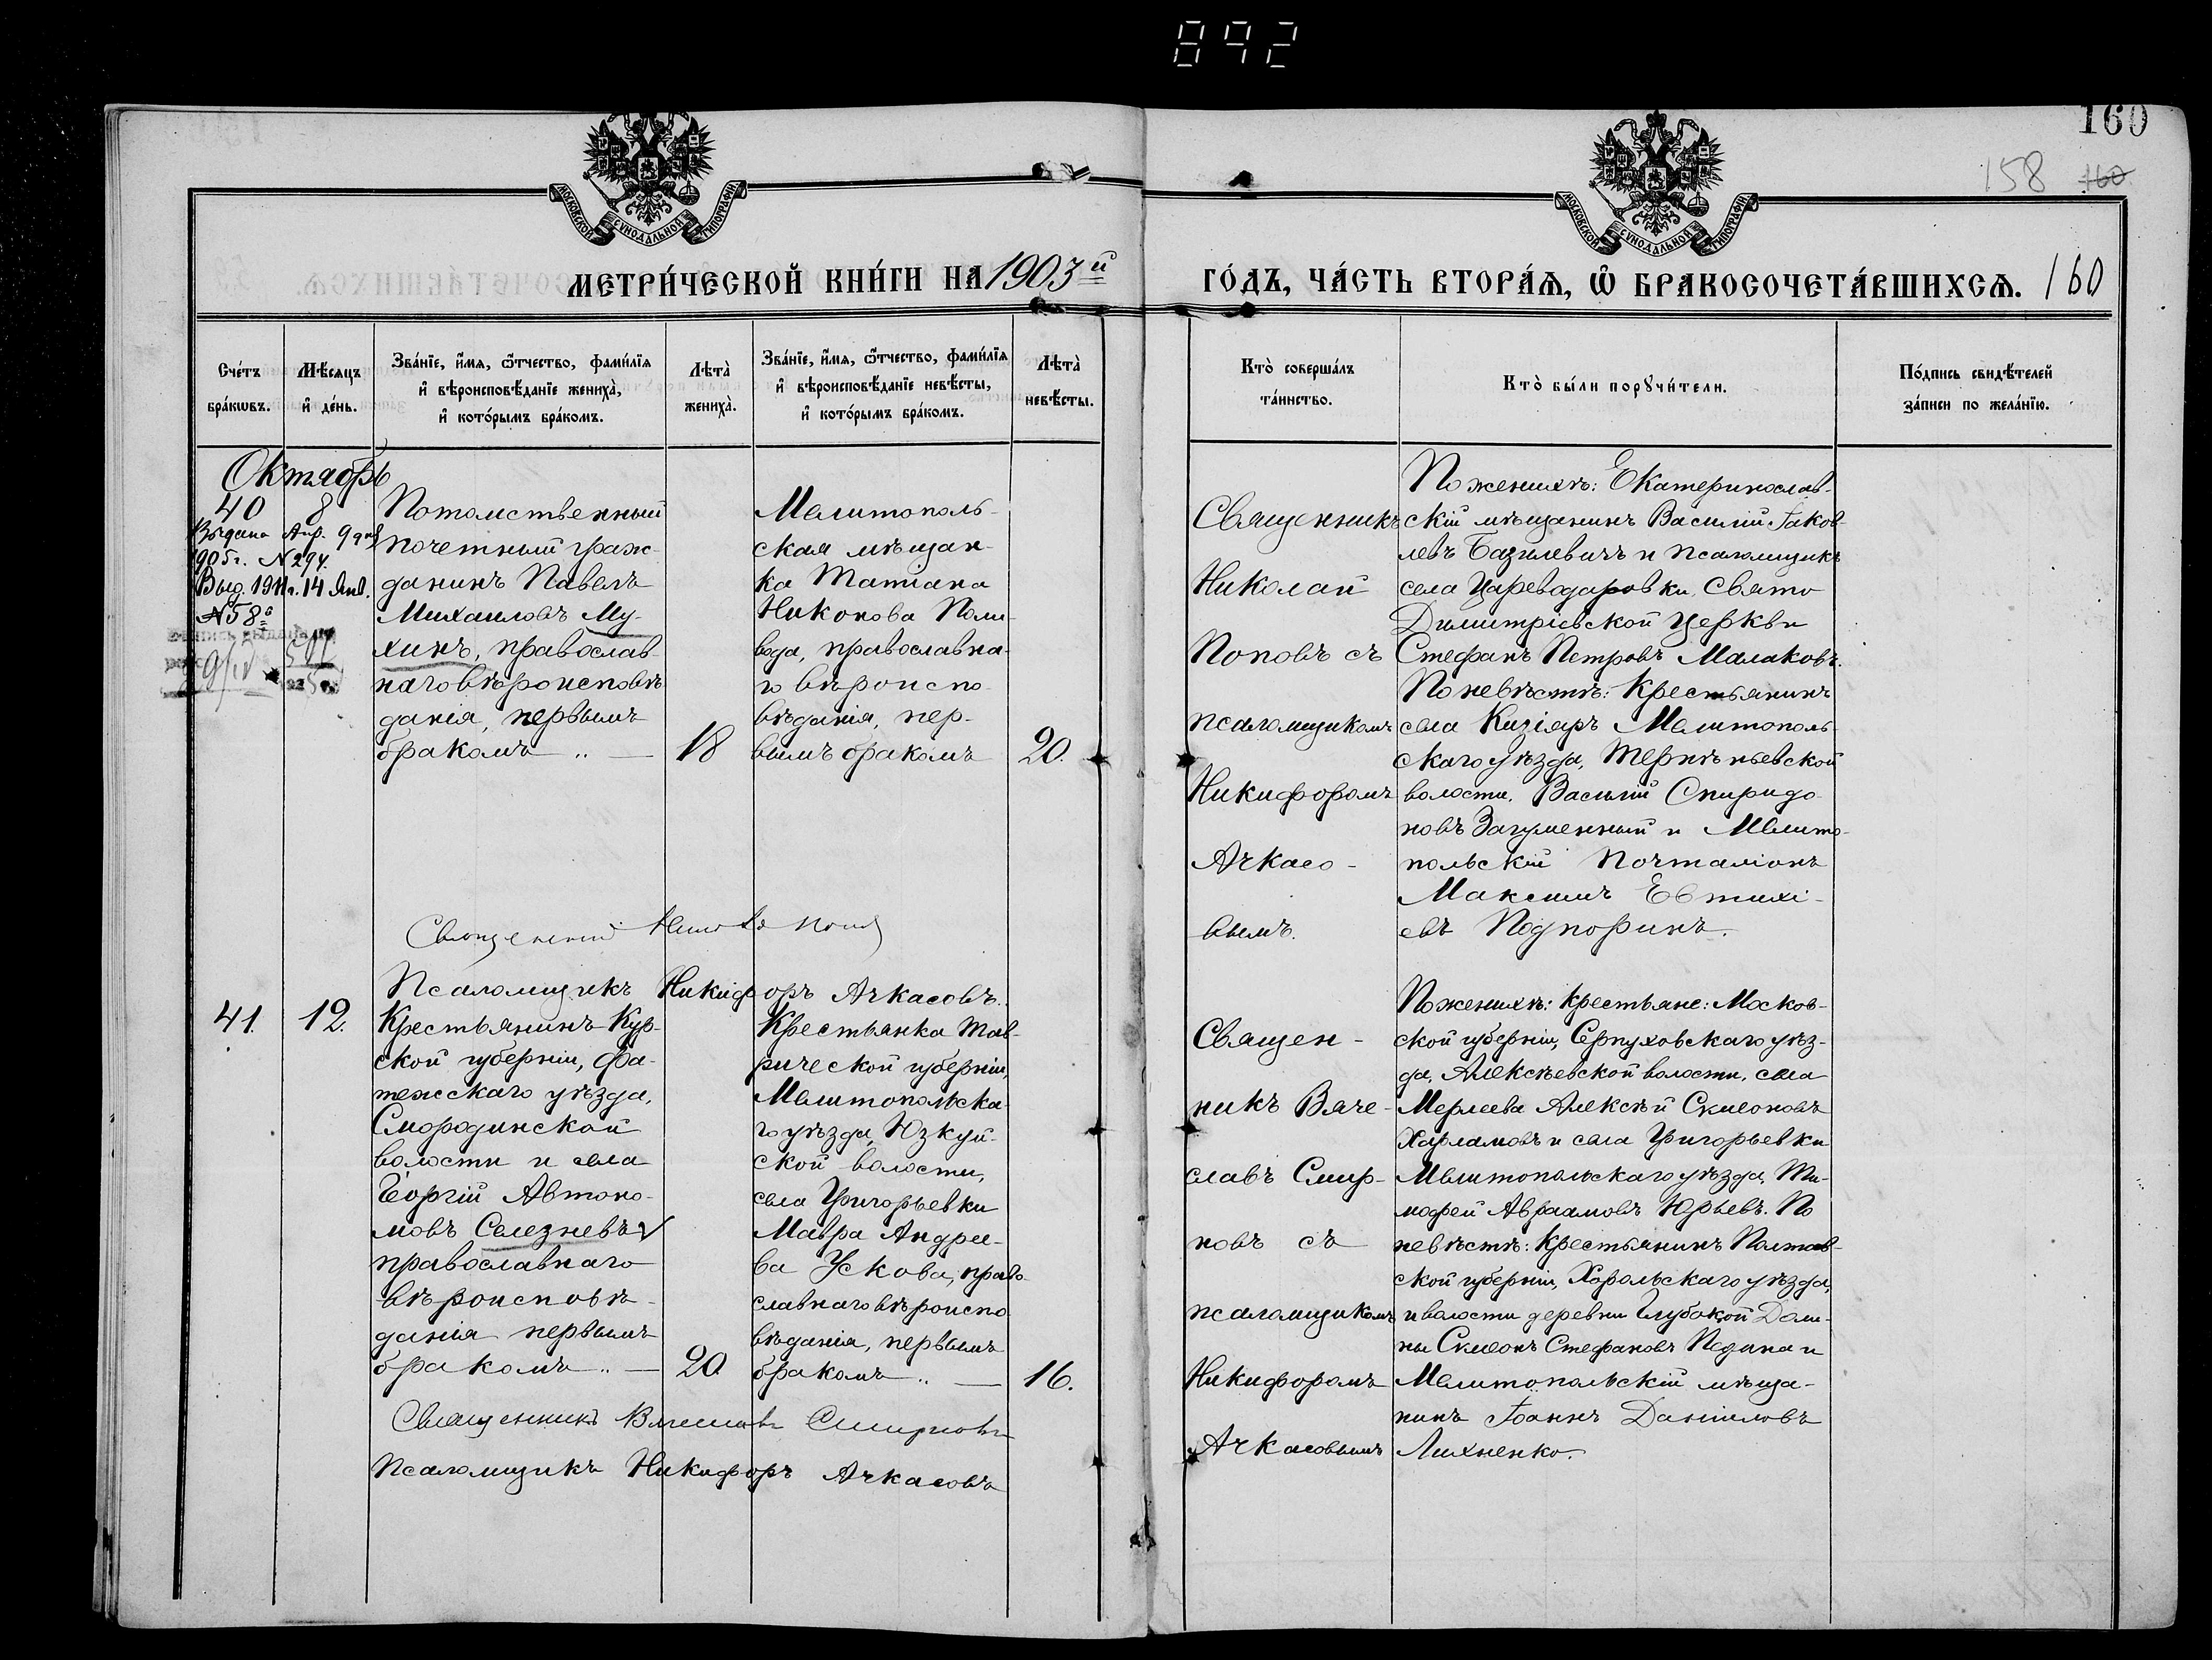 892
160
158 160
МОСКОВСКОЙ СУНОДАЛЬНОЙ ТИПОГРАФІИ
МОСКОВСКОЙ СУНОДАЛЬНОЙ ТИПОГРАФІИ
МЕТРИ́ЧЕСКОЙ КНИ́ГИ НА 1903й ГО́ДЪ, ЧА́СТЬ ВТОРА́Ѧ, Ѽ БРАКОСОЧЕТА́ВШИХСѦ. 160
Сче́тъ бра́кѡвъ.
Мѣ́сѧцъ и҆ де́нь.
Зва́нїе, и҆́мѧ, ѻ҆́тчество, фами́лїѧ
и҆ вѣроисповѣ́данїе жениха̀,
и҆ кото́рымъ бра́комъ.
Лѣта̀ жениха̀.
Зва́нїе, и҆́мѧ, ѻ҆́тчество, фами́лїѧ
и҆ вѣроисповѣ́данїе невѣ́сты,
и҆ кото́рымъ бра́комъ.
Лѣта̀ невѣ́сты.
Кто̀ соверша́лъ
та́инство.
Кто̀ бы́ли порꙋчи́тели.
По́дпись свидѣ́телей
за́писи по жела́нїю.
Октябрь
40 8
Выдана Апр. 9 дня
1905г. N 294.
Выд. 1911г. 14 Янв.
N 58
Потомственный
почетный граж-
данинъ Павелъ
Михаиловъ Му-
хинъ, православ
наго вѣроисповѣ
данія, первымъ
бракомъ .. — 18
Мелитополь-
ская мѣщан-
ка Татіана
Никонова Поли-
вода, православна-
го вѣроиспо-
вѣданія, пер-
вымъ бракомъ 20.
Священникъ
Николай
Поповъ съ
псаломщикомъ
Никифоромъ
Ачкасо-
вымъ.
По женихѣ: Екатеринослав-
скій мѣщанинъ Василій Яков-
левъ Базилевичъ и псаломщикъ
села Цареводаровки, Свято
Димитріевской церкви
Стефанъ Петровъ Малаковъ.
По невѣстѣ: Крестьянинъ
села Кизіяръ Мелитополь-
скаго уѣзда, Терпѣньевской
волости, Василій Спиридо-
новъ Загуменный и Мелито-
польскій Почталіонъ
Максимъ Евтихі-
евъ Подпоринъ.
Священникъ
Псаломщикъ Никифоръ Ачкасовъ.
41. 12.
Крестьянинъ Кур-
ской губерніи, Фа-
тежскаго уѣзда,
Смородинской
волости и села
Георгій Автоно-
мовъ Селезневъ V
православнаго
вѣроисповѣ-
данія первымъ
бракомъ .. — 20
Крестьянка Тав-
рической губерніи,
Мелитопольска-
го уѣзда, Юзкуй-
ской волости,
села Григорьевки
Мавра Андрее-
ва Ускова, право-
славнаго вѣроиспо
вѣданія, первымъ
бракомъ .. — 16.
Священ-
никъ Вяче-
славъ Смир-
новъ съ
псаломщикомъ
Никифоромъ
Ачкасовымъ
По женихѣ: крестьяне: Москов-
ской губерніи, Серпуховскаго уѣз-
да, Алексѣевской волости, села
Мерлеева Алексѣй Симеоновъ
Харламовъ и села Григорьевки
Мелитопольскаго уѣзда, Ти-
мофей Авраамовъ Юрьевъ. По
невѣстѣ: Крестьянинъ Полтав-
ской губерніи, Хорольскаго уѣзда,
и волости деревни Глубокой Доли-
ны Симеонъ Стефановъ Педина и
Мелитопольскій мѣща-
нинъ Іоаннъ Даніиловъ
Лихненко.
Священникъ Вячеславъ Смирновъ
Псаломщикъ Никифоръ Ачкасовъ